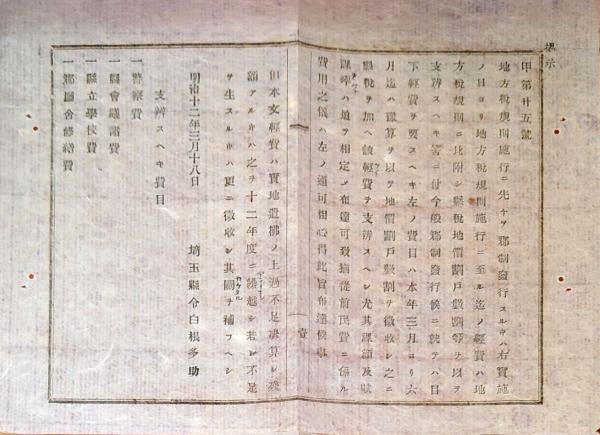 掲示
甲第廿五號
地方税規則施行ニ先ケヲ郡制發行スルキハ右實施
ノ日ヨリ地方税規則施行ニ至ル迄ノ經費ハ地
方税規則ニ比附シ縣税地價割戸數割等ヲ以テ
支辨スヘキ筈ニ付今般郡制發行候ニ就テハ目
下經費ヲ要スヘキ左ノ費目ハ本年三月ヨリ六
月迄ハ豫算ヲ以テ地價割戸數割ヲ徴收シ之ニ
縣税ヲ加ヘ該經費ヲ支辨スヘシ尤其課額及賦
課
ハ追ヲ相定メ布達可致
從前民費ニ係ル
費用之儀ハ左ノ通可相心得此旨布達候事
但本文經費ハ實地遣拂ノ上過不足决算シ殘
額アルキハ之ヲ十二年度ニ繰越シ若シ不足
ヲ生スルキハ更ニ徴收シ其闕ヲ補フヘシ
明治十二年三月十八日
埼玉縣令白根多助
支辨スヘキ費目
一警察費
一縣會議諸費
一縣立學校費
一郡廳舍修繕費
壹